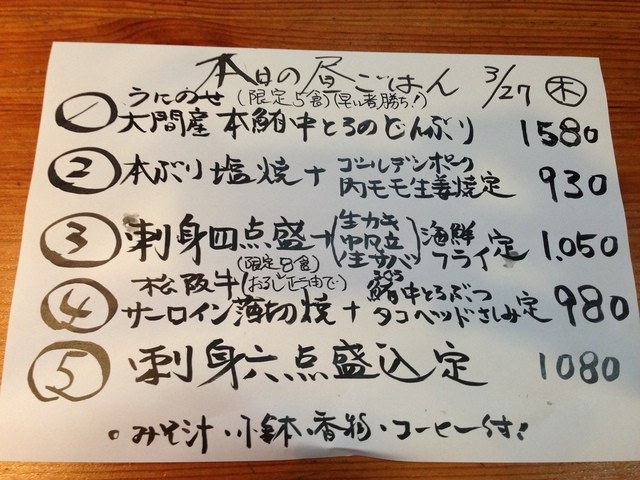 本日の昼ごはん 3/27 木
うにのせ (限定5食)(早い者勝ち!)
① 大間産本鮪中とろのどんぶり 1580
② 本ぶり塩焼+ゴールデンポーク内モモ生姜焼定 930
③ 刺身四点盛+(生カキ 帆立 生サバ)海鮮フライ定 1.050
(限定8食)
松阪牛(おろし正油で)
④ サーロイン薄切焼+鮪中とろぶつ タコヘッドさしみ定 980
⑤ 刺身六点盛込定 1080
。みそ汁・小鉢・香物・コーヒー付!